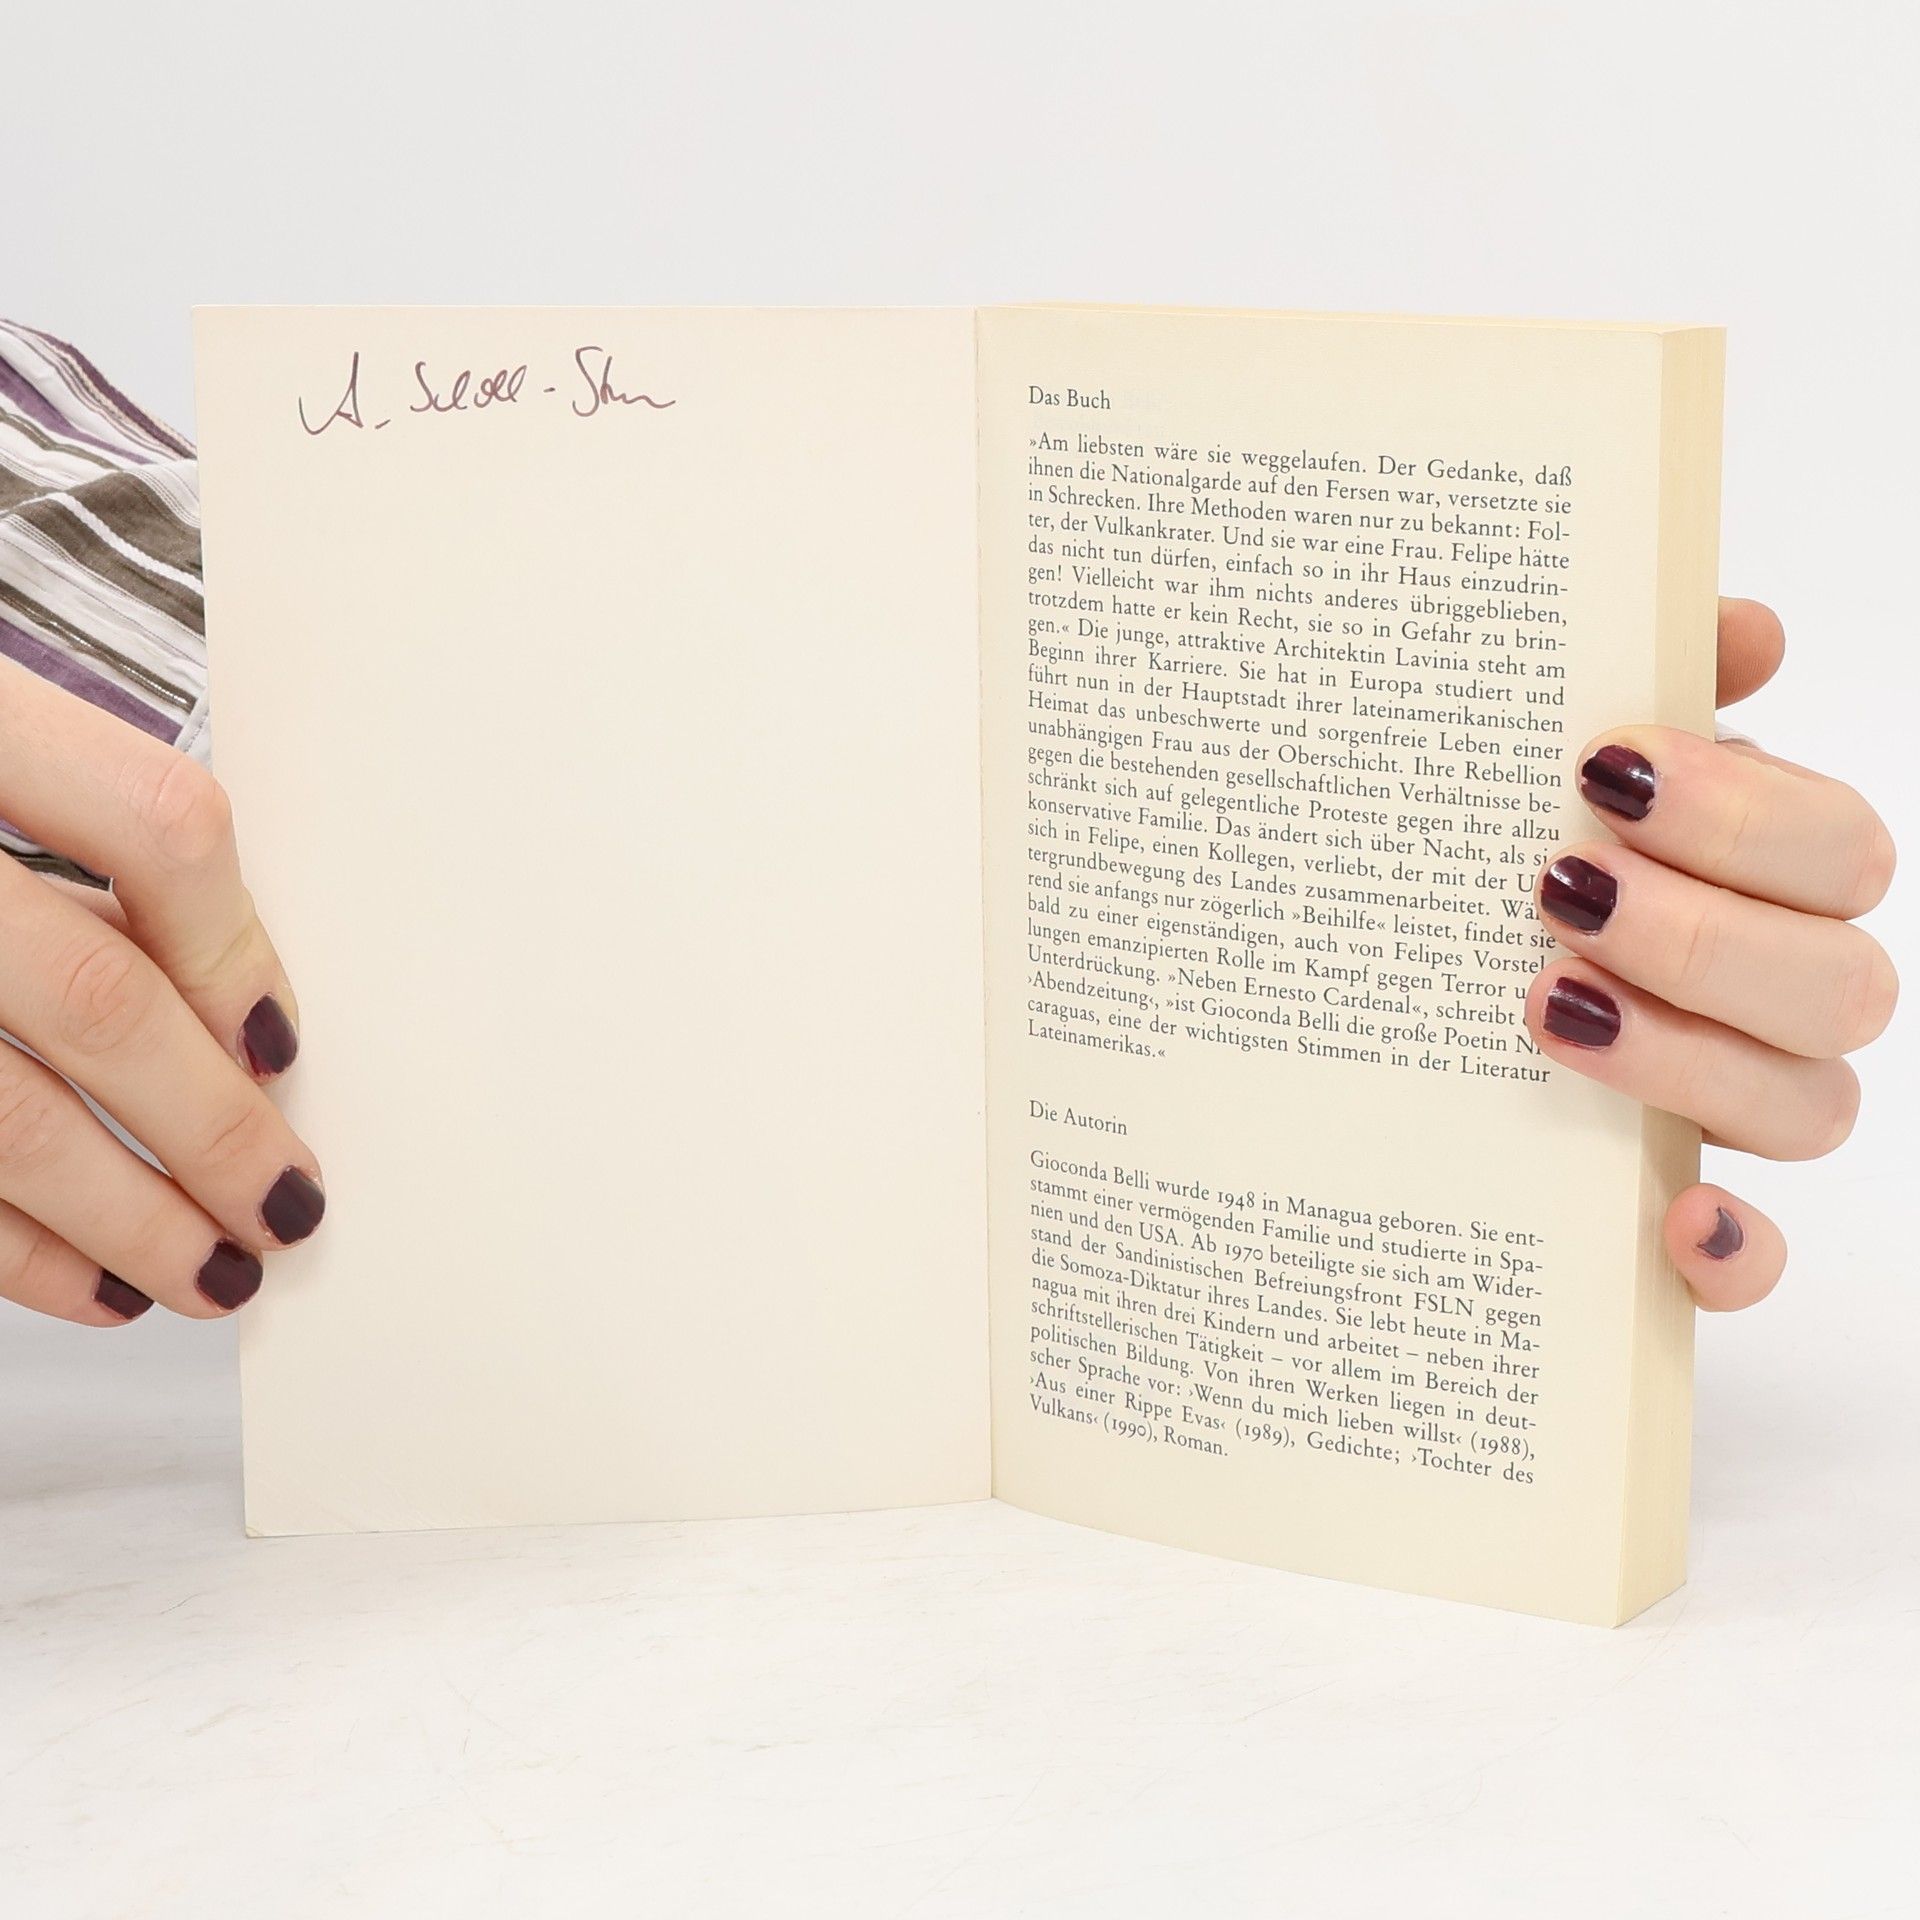 Das Buch
»Am liebsten wäre sie weggelaufen. Der Gedanke, daß
ihnen die Nationalgarde auf den Fersen war, versetzte sie
in Schrecken. Ihre Methoden waren nur zu bekannt: Fol-
ter, der Vulkankrater. Und sie war eine Frau. Felipe hätte
das nicht tun dürfen, einfach so in ihr Haus einzudrin-
gen! Vielleicht war ihm nichts anderes übriggeblieben,
trotzdem hatte er kein Recht, sie so in Gefahr zu brin-
gen.« Die junge, attraktive Architektin Lavinia steht am
Beginn ihrer Karriere. Sie hat in Europa studiert und
führt nun in der Hauptstadt ihrer lateinamerikanischen
Heimat das unbeschwerte und sorgenfreie Leben einer
unabhängigen Frau aus der Oberschicht. Ihre Rebellion
gegen die bestehenden gesellschaftlichen Verhältnisse be-
schränkt sich auf gelegentliche Proteste gegen ihre allzu
konservative Familie. Das ändert sich über Nacht, als
sich in Felipe, einen Kollegen, verliebt, der mit der
tergrundbewegung des Landes zusammenarbeitet.
rend sie anfangs nur zögerlich »Beihilfe« leistet, findet sie
bald zu einer eigenständigen, auch von Felipes Vorstel-
lungen emanzipierten Rolle im Kampf gegen Terror
Unterdrückung. »Neben Ernesto Cardenal«, schreibt
›Abendzeitung‹, »ist Gioconda Belli die große Poetin
caraguas, eine der wichtigsten Stimmen in der Literatur
Lateinamerikas.«
Die Autorin
Gioconda Belli wurde 1948 in Managua geboren. Sie ent-
stammt einer vermögenden Familie und studierte in Spa-
nien und den USA. Ab 1970 beteiligte sie sich am Wider-
stand der Sandinistischen Befreiungsfront FSLN gegen
die Somoza-Diktatur ihres Landes. Sie lebt heute in Ma-
nagua mit ihren drei Kindern und arbeitet – neben ihrer
schriftstellerischen Tätigkeit – vor allem im Bereich der
politischen Bildung. Von ihren Werken liegen in deut-
scher Sprache vor: ›Wenn du mich lieben willst‹ (1988),
›Aus einer Rippe Evas‹ (1989), Gedichte; ›Tochter des
Vulkans‹ (1990), Roman.